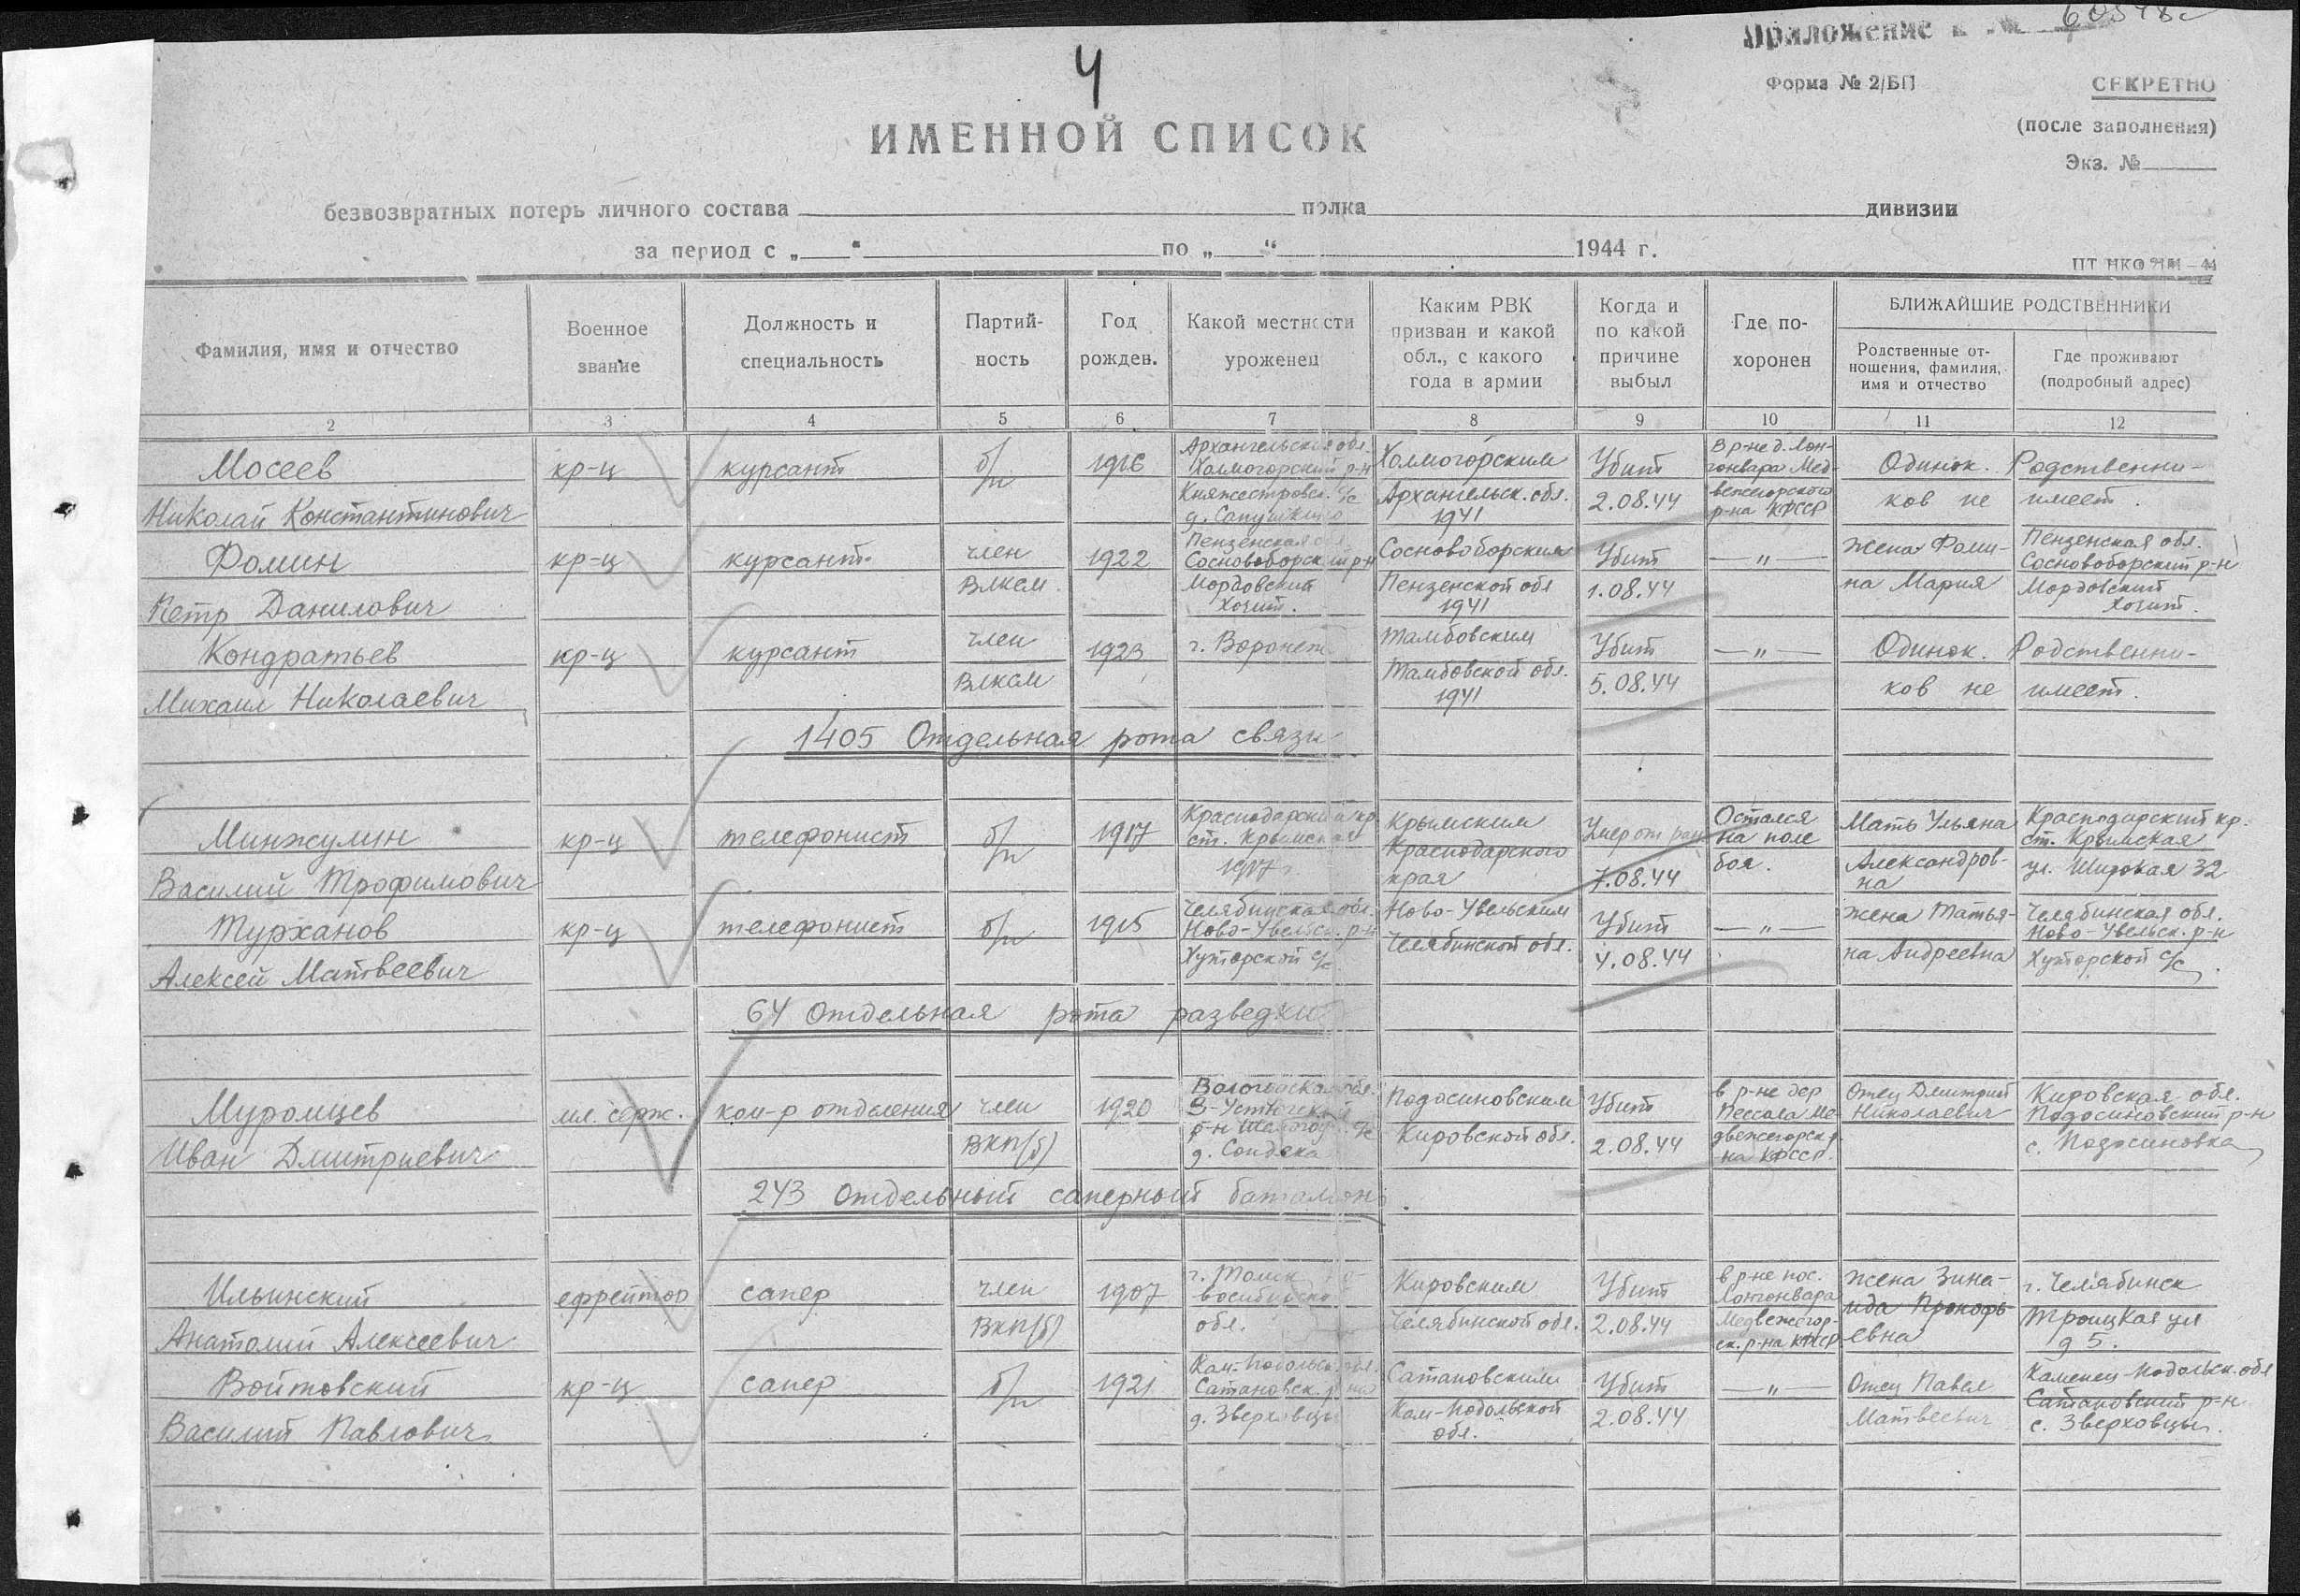 60548с
Приложение к №
4
Форма № 2/БП
СЕКРЕТНО
(после заполнения)
Экз. №
ИМЕННОЙ СПИСОК
безвозвратных потерь личного состава полка дивизии
за период с „ “ по „ “ 1944 г.
ПТ НКО
Фамилия, имя и отчество
Военное звание
Должность и специальность
Партий-
ность
Год рожден.
Какой местности уроженец
Каким РВК
призван и какой
обл., с какого
года в армии
Когда и
по какой
причине
выбыл
Где по-
хоронен
БЛИЖАЙШИЕ РОДСТВЕННИКИ
Родственные от-
ношения, фамилия,
имя и отчество
Где проживают
(подробный адрес)
2 3 4 5 6 7 8 9 10 11 12
Мосеев
Николай Константинович
кр-ц
курсант
б/п
1916
Архангельская обл.
Холмогорский р-н
Княжестровск. с/с
д.
Холмогорским
Архангельск. обл.
1941
Убит
2.08.44
В р-не д. Лон-
гонвара Мед-
вежегорского
р-на КФССР
Одинок. Родственни-
ков не имеет.
Фомин
Петр Данилович
кр-ц
курсант
член
Влксм
1922
Пензенская обл.
Сосновоборский р-н
Мордовский
Качим.
Сосновоборским
Пензенской обл
1941
Убит
1.08.44
— „ —
жена Фоми-
на Мария
Пензенская обл.
Сосновоборский р-н
Мордовский
Качим.
Кондратьев
Михаил Николаевич
кр-ц
курсант
член
Влксм
1923
г. Воронеж
Тамбовским
Тамбовской обл.
1941
Убит
5.08.44
— „ —
Одинок. Родственни-
ков не имеет.
1405 Отдельная рота связи
Минжулин
Василий Трофимович
кр-ц
телефонист
б/п
1917
Краснодарский кр.
ст. Крымская
1917
Крымским
Краснодарского
края
Умер от ран
7.08.44
Остался
на поле
боя.
Мать Ульяна
Александров-
на
Краснодарский кр.
ст. Крымская
ул. Широкая 32
Турханов
Алексей Матвеевич
кр-ц
телефонист
б/п
1915
Челябинская обл.
Ново-Увельск. р-н
Хуторской с/с.
Ново-Увельским
Челябинской обл.
Убит
4.08.44
— „ —
жена Татья-
на Андреевна
Челябинская обл.
Ново-Увельск. р-н
Хуторской с/с.
64 Отдельная рота разведки
Муромцев
Иван Дмитриевич
мл. серж.
ком-р отделения
член
ВКП(б)
1920
Вологодская обл.
В-Устюгский
р-н с/с
д.
Подосиновским
Кировской обл.
Убит
2.08.44
в р-не дер
Ме-
двежегорск р
-на КФССР.
Отец Дмитрий
Николаевич
Кировская обл.
Подосиновский р-н
с. Подосиновка
243 Отдельный саперный батальон
Ильинский
Анатолий Алексеевич
ефрейтор
сапер
член
ВКП(б)
1907
г. Томск Но-
восибирской
обл.
Кировским
Челябинской обл.
Убит
2.08.44
в р-не пос.
Лонгонвара
Медвежегор-
ск. р-на КФССР
жена Зина-
ида Прокофь-
евна
г. Челябинск
Троицкая ул
д 5.
Войтовский
Василий Павлович
кр-ц
сапер
б/п
1921
Кам-Подольск. обл.
Сатановск. р-на
д. Зверховцы
Сатановским
Кам-Подольской
обл.
Убит
2.08.44
— „ —
Отец Павел
Матвеевич
Каменец-Подольск. обл
Сатановский р-н
с. Зверховцы.